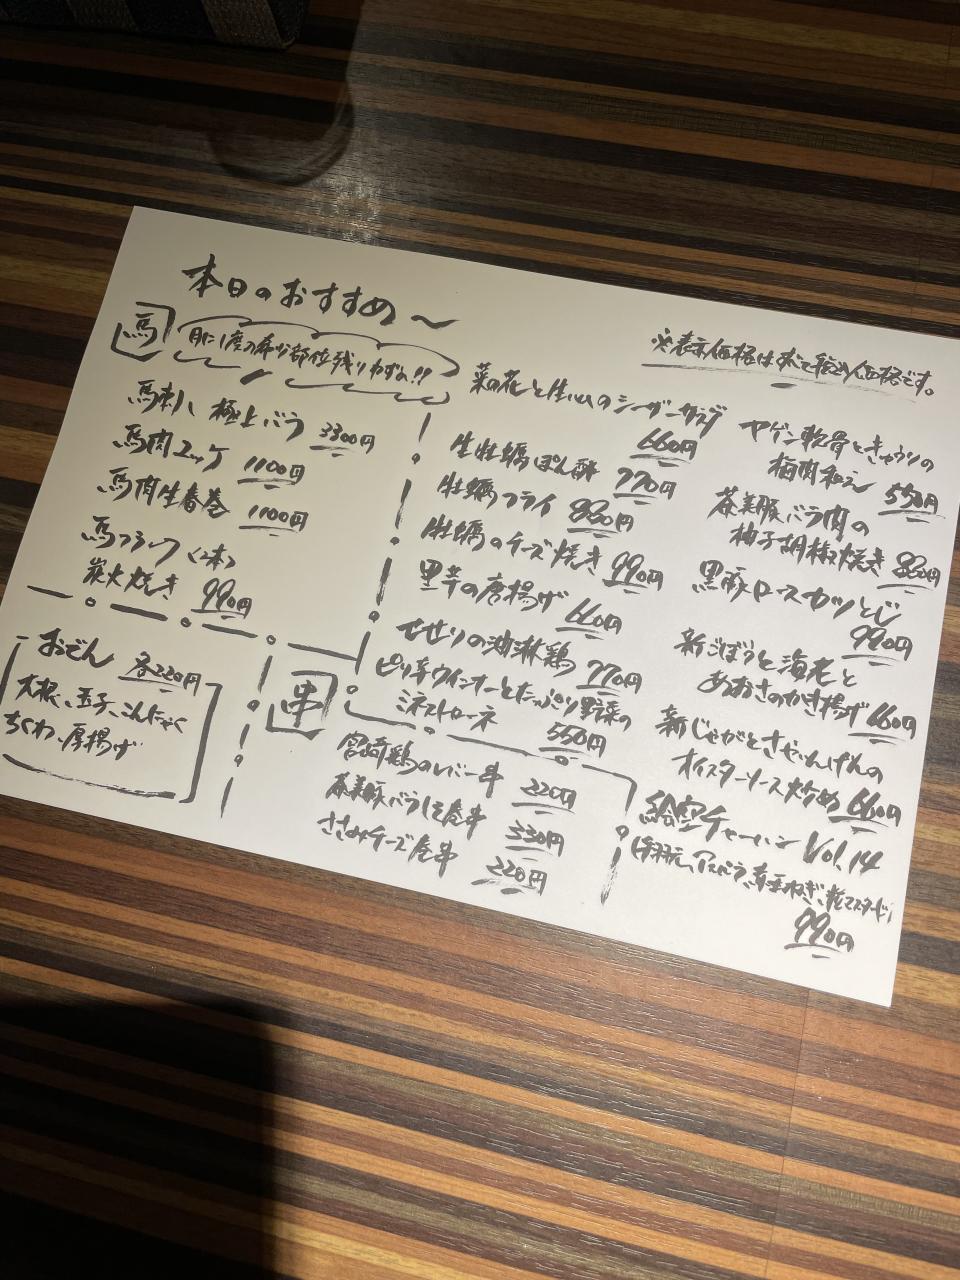 本日のおすすめ〜
※表示価格はすべて税込価格です。
馬
月に1度の希少部位残りわずか!!
馬刺し 極上バラ 3300円
馬肉ユッケ 1100円
馬肉生春巻 1100円
馬フランク〈2本〉
炭火焼き 990円
おでん 各220円
大根、玉子、こんにゃく
ちくわ、厚揚げ
菜の花と生ハムのシーザーサラダ
660円
生牡蠣ぽん酢 770円
牡蠣フライ 880円
牡蠣のチーズ焼き 990円
里芋の唐揚げ 660円
せせりの油淋鶏 770円
ピリ辛ウインナーとたっぷり野菜の
ミネストローネ 550円
串
宮崎鶏のレバー串 220円
茶美豚バラしそ巻串 330円
ささみチーズ巻串 220円
ヤゲン軟骨ときゅうりの
梅肉和え 550円
茶美豚バラ肉の
柚子胡椒焼き 880円
黒豚ロースカツとじ
990円
新ごぼうと海老と
あおさのかき揚げ 660円
新じゃがとさやいんげんの
オイスターソース炒め 660円
チャーハン Vol.14
アスパラ、ねぎ、マスタード
990円